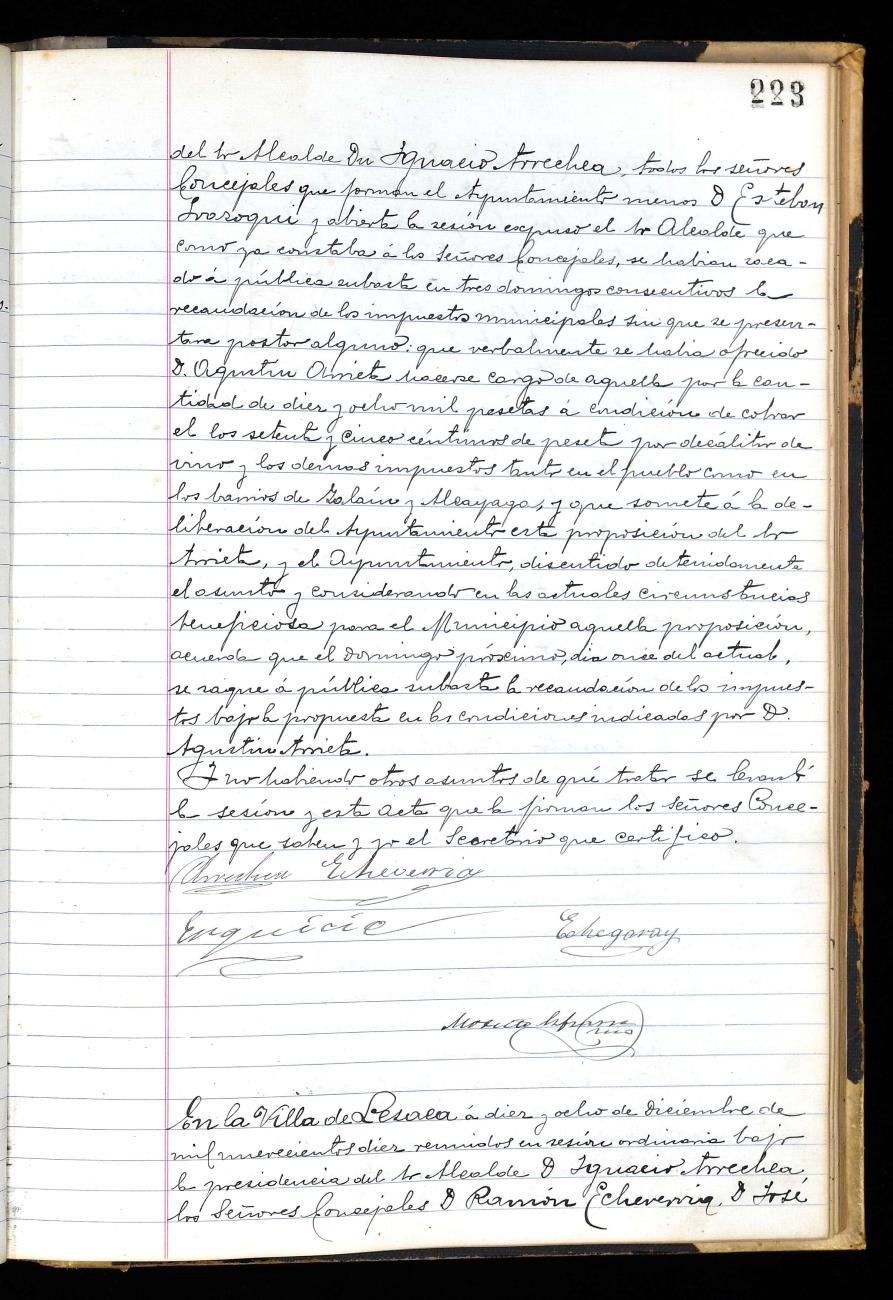 223
del Sr Alcalde Dn Ignacio Arrechea, todos los señores
Concejales que forman el Ayuntamiento menos D Esteban
Irazoqui y abierta la sesión expuso el Sr Alcalde que
como ya constaba á los Señores Concejales, se habian saca-
do á pública subasta en tres domingos consecutivos la
recaudación de los impuestos municipales sin que se presen-
tara postor alguno: que verbalmente se habia ofrecido
D. Agustin Arrieta hacerse cargo de aquella por la can-
tidad de diez y ocho mil pesetas á condición de cobrar
el los setenta y cinco céntimos de peseta por decálitro de
vino y los demas impuestos tanto en el pueblo como en
los barrios de Zalain y Alcayaga, y que somete á la de-
liberación del Ayuntamiento esta proposición del Sr
Arrieta, y el Ayuntamiento, discutido detenidamente
el asunto y considerando en las actuales circunstancias
beneficiosa para el Municipio aquella proposición,
acuerda que el Domingo próximo, dia once del actual,
se saque á pública subasta la recaudación de los impues-
tos bajo la propuesta en las condiciones indicadas por D.
Agustin Arrieta.
Y no habiendo otros asuntos de qué tratar se levantó
la sesión y esta acta que la firman los señores Conce-
jales que saben y yo el Secretario que certifico.
Arrechea Echeverria
Echegaray
En la Villa de Lesaca á diez y ocho de Diciembre de
mil nuevecientos diez reunidos en sesión ordinaria bajo
la presidencia del Sr Alcalde D Ignacio Arrechea
los Señores Concejales D Ramón Echeverria, D José